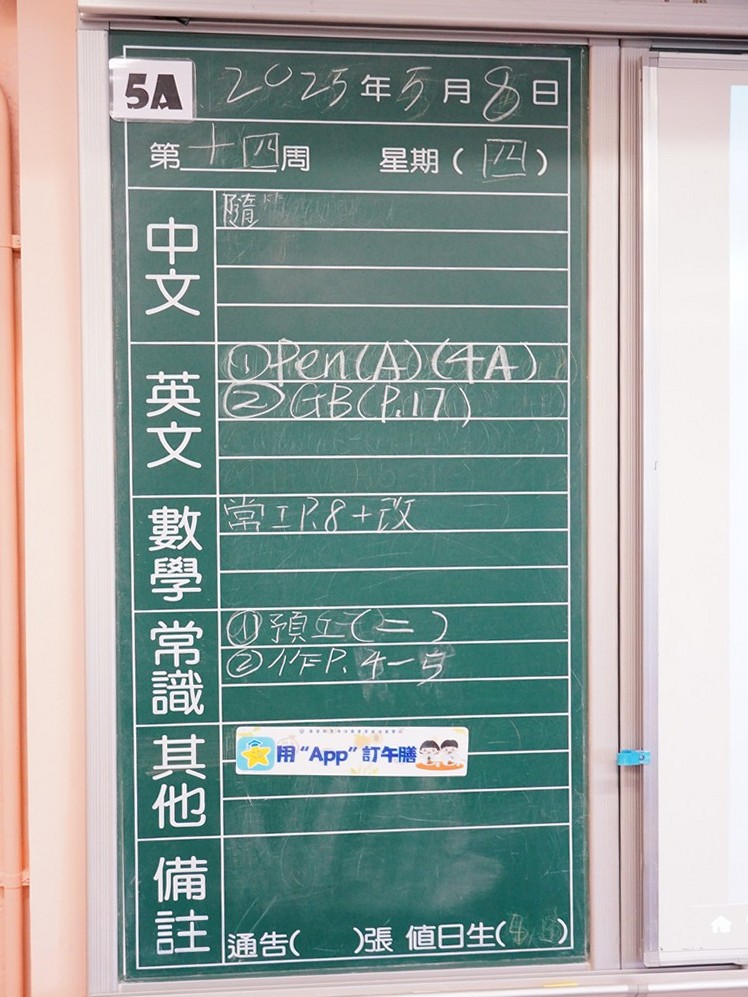 5A 2025年5月8日
第十四周 星期(四)
中文
隨
英文
①Pen(A)(4A)
②GB(P.17)
數學
常工P.8+改
常識
①預工(二)
②作P.4-5
其他
用“App”訂午膳
備註
通告( )張 值日生( )